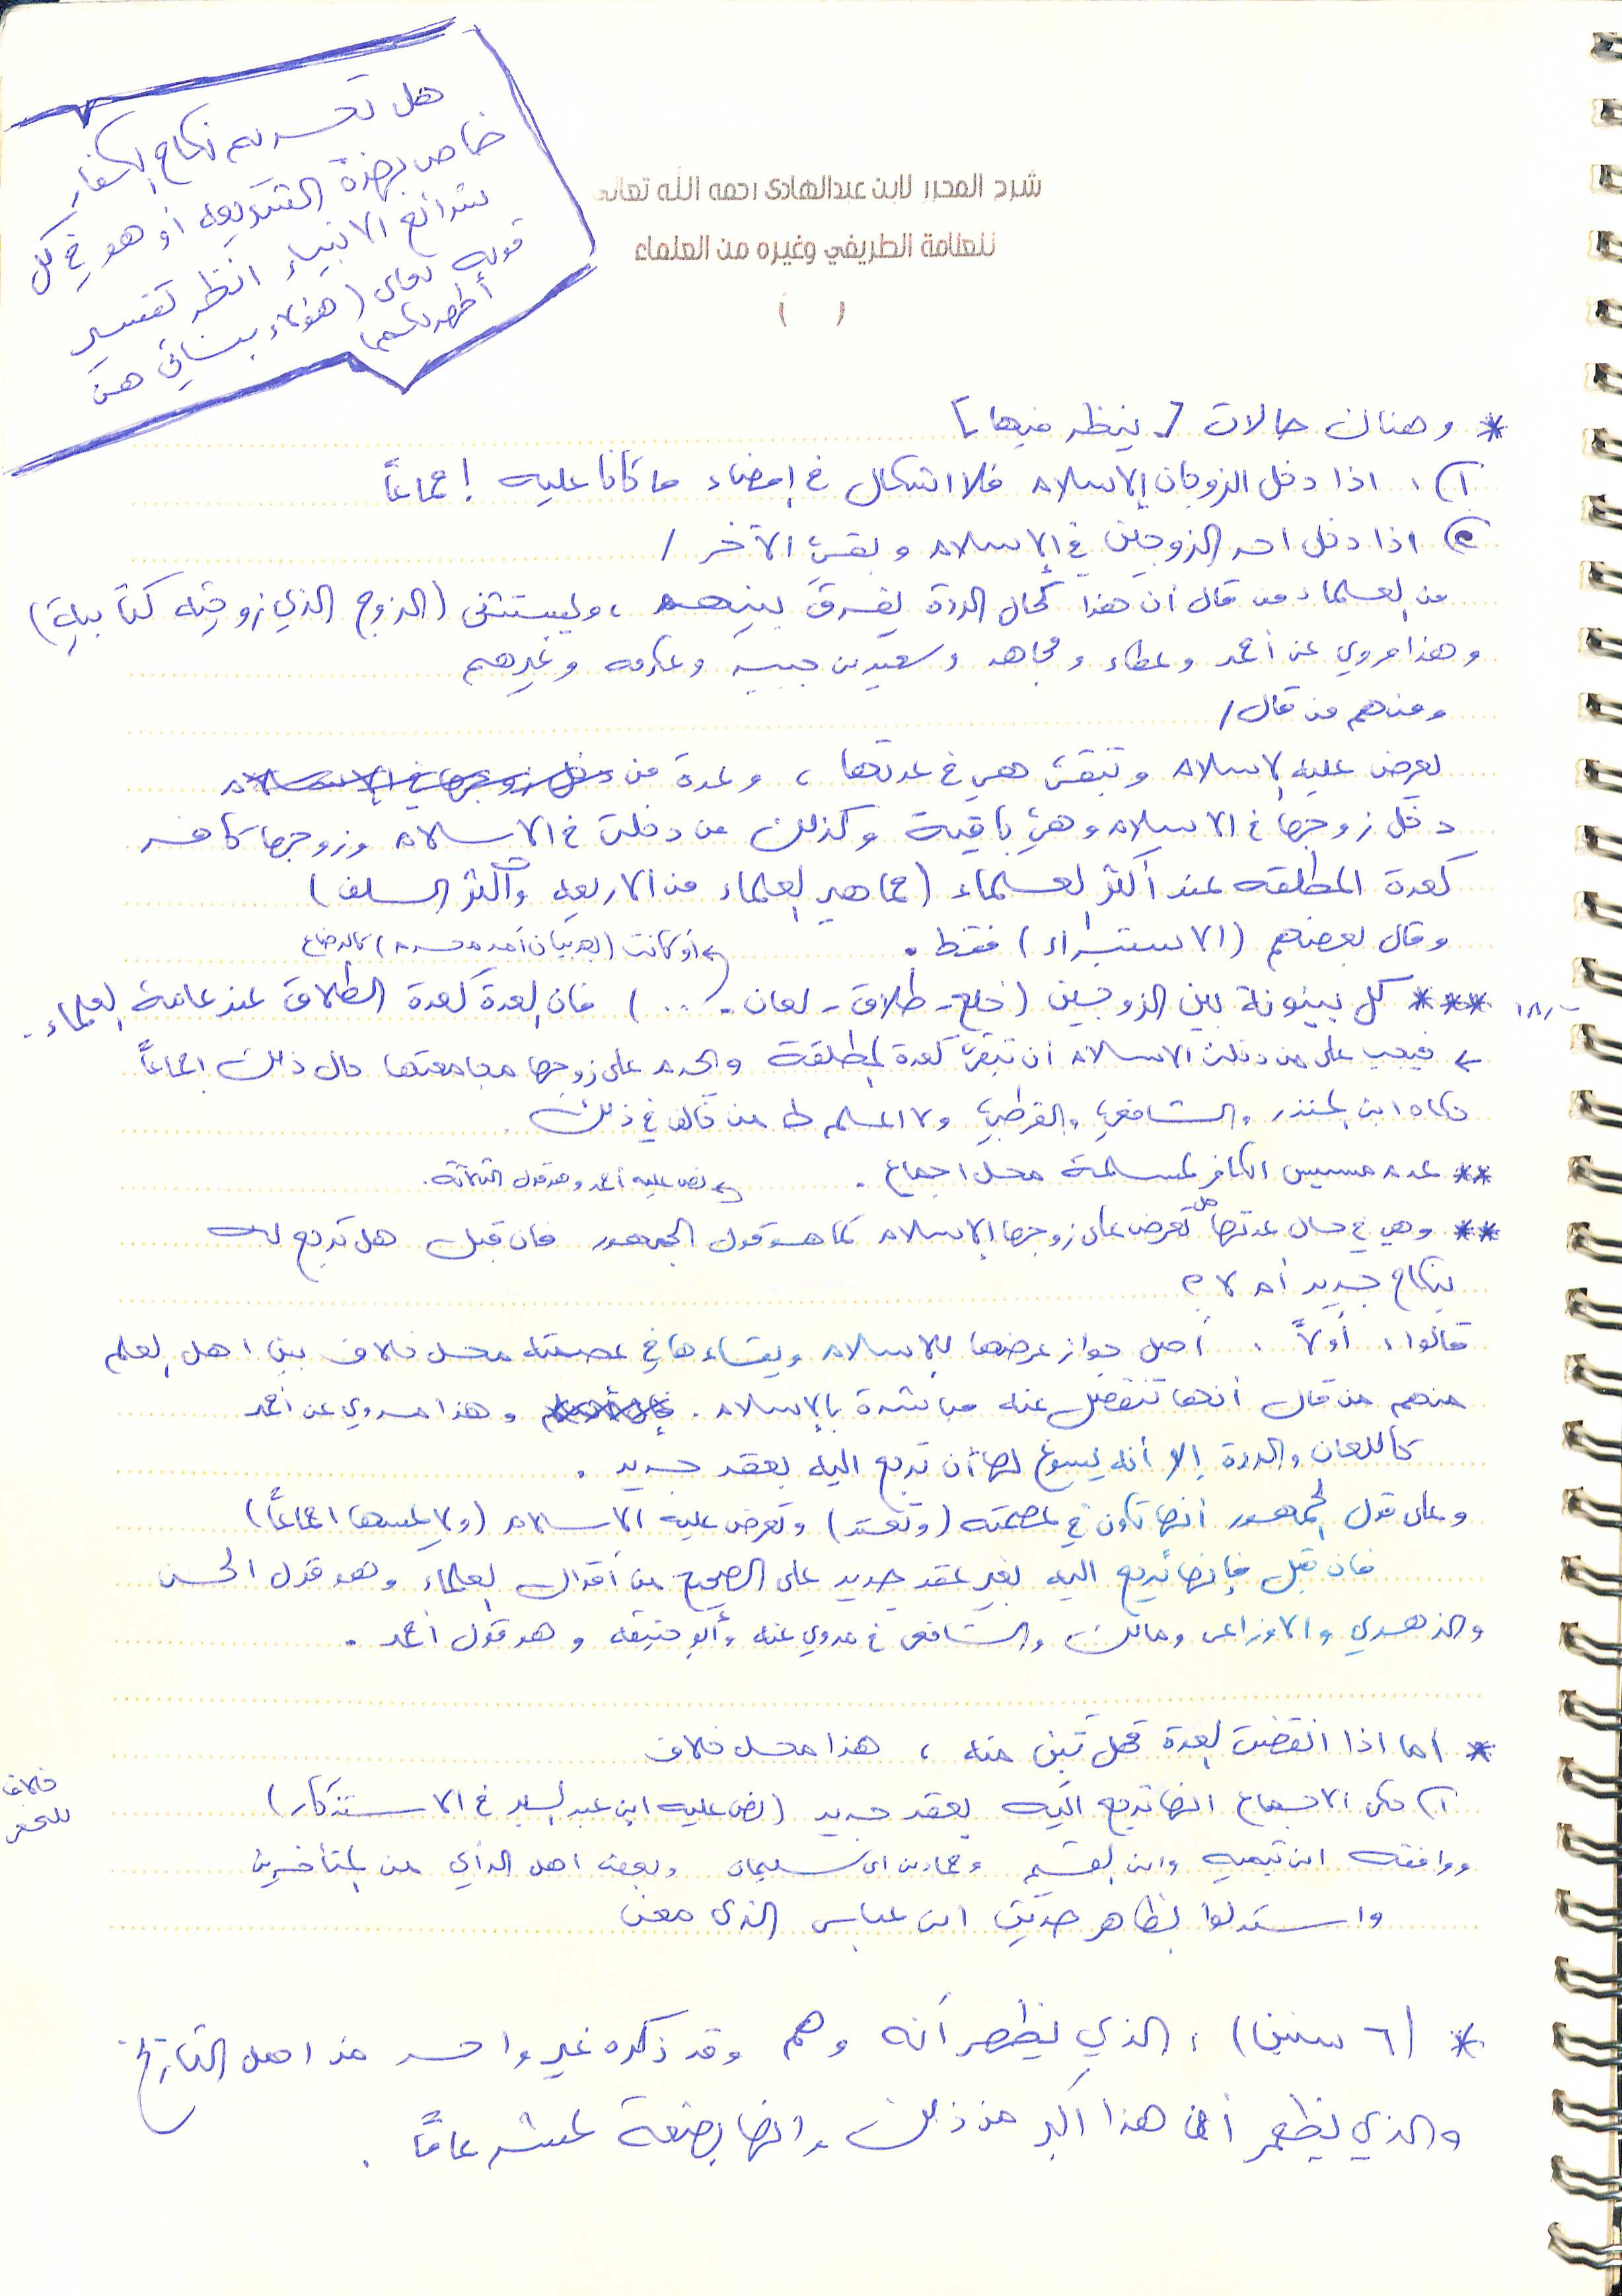 هل تحريم نكاح الكفار
خاص بهذة الشريعه أو هو في كل
شرائع الانبياء انظر تفسير
قوله تعالى (هؤلاء بناتي هن
أطهر لكم)
شرح المحرر لابن عبدالهادى رحمه الله تعالى
للعلامة الطريفي وغيره من العلماء
( )
* وهناك حالات [ينظر فيها]
١) اذا دخل الزوجان الاسلام فلا اشكال في إمضاء ما كانا عليه إجماعاً
٢) اذا دخل احد الزوجين في الاسلام وبقي الآخر /
من العلماء من قال أن هذا كحال الردة يفرق بينهم ، ويستثنى (الزوج الذي زوجته كتابية)
وهذا مروي عن أحمد وعطاء ومجاهد وسعيد بن جبير وعكرمه وغيرهم
ومنهم من قال /
يعرض عليه الاسلام وتبقى هي في عدتها ، وعدة من
دخل زوجها في الاسلام وهي باقية وكذلك من دخلت في الاسلام وزوجها كافر
كعدة المطلقه عند أكثر العلماء (جماهير العلماء من الاربعه وأكثر السلف)
وقال بعضهم (الاستبراء) فقط .
أو كانت (يعد بيان أمر محرم) كالرضاع
*** كل بينونة بين الزوجين (خلع - طلاق - لعان - ..) فان العدة كعدة الطلاق عند عامة العلماء .
فيجب على من دخلت الاسلام أن تبقى كعدة المطلقة ويحرم على زوجها مجامعتها حال ذلك اجماعاً
حكاه ابن المنذر والشافعي والقرطبي ولا اعلم من خالف في ذلك .
** عدم مسيس الكافر لمسلمة محل اجماع .
نص عليه أحمد وهو قول الثلاثة .
** وهي في حال عدتها هل تعرض على زوجها الاسلام كما هو قول الجمهور فان قبل هل ترجع له
بنكاح جديد أم لا ؟
قالوا : أولاً : أصل جواز عرضها للاسلام وبقاءها في عصمته محل خلاف بين اهل العلم
منهم من قال أنها تنفصل عنه مباشرة بالاسلام . وهذا مروي عن أحمد
كاللعان والردة إلا أنه يسوغ لها أن ترجع اليه بعقد جديد .
وعلى قول الجمهور أنها تكون في عصمته (وتعتد) وتعرض عليه الاسلام (ولا يمسها اجماعاً)
فان قبل فإنها ترجع اليه بغير عقد جديد على الصحيح من أقوال العلماء وهو قول الحسن
والزهري والاوزاعي ومالك والشافعي في مروي عنه وأبو حنيفه وهو قول أحمد .
* اما اذا انقضت العدة فهل تبين منه ، هذا محل خلاف
١) حكي الاجماع انها ترجع اليه بعقد جديد (نص عليه ابن عبد البر في الاستذكار)
خلافا
للنخعي
ووافقه ابن تيميه وابن القيم وحماد بن ابي سليمان وبعض اهل الرأي من المتأخرين
واستدلوا بظاهر حديث ابن عباس الذي معنى
* (٦ سنين) : الذي يظهر أنه وهم وقد ذكره غير واحد من اهل التاريخ
والذي يظهر أن هذا اكبر من ذلك وانها بضعة عشر عاماً .